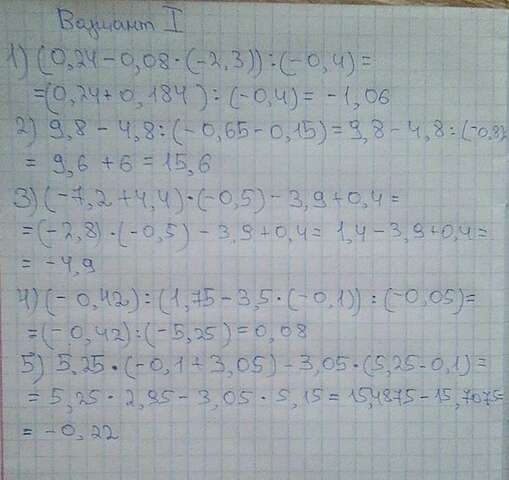 Вариант I
1) (0,24-0,08·(-2,3)):(-0,4)=
=(0,24+0,184):(-0,4)=-1,06
2) 9,8-4,8:(-0,65-0,15)=9,8-4,8:(-0,8)
= 9,6+6=15,6
3) (-7,2+4,4)·(-0,5)-3,9+0,4=
=(-2,8)·(-0,5)-3,9+0,4= 1,4-3,9+0,4=
= -4,9
4) (-0,42):(1,75-3,5·(-0,1)):(-0,05)=
=(-0,42):(-5,25)=0,08
5) 5,25·(-0,1+3,05)-3,05·(5,25-0,1)=
= 5,25·2,95-3,05·5,15=15,4875-15,7075=
= -0,22